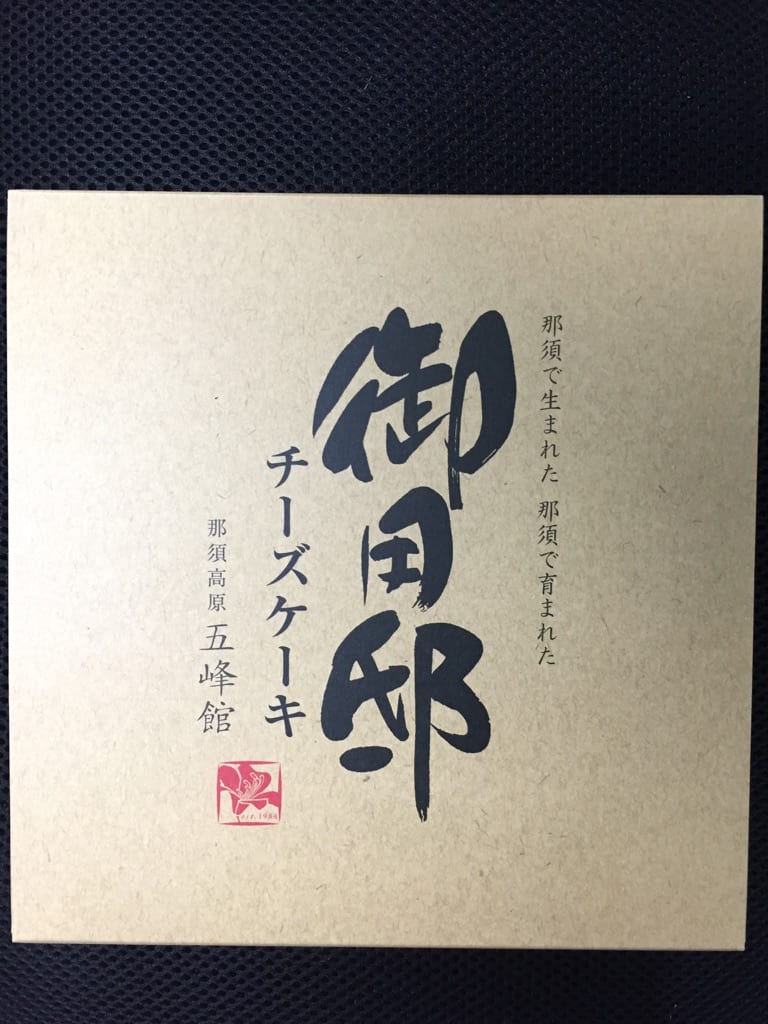 那須で生まれた 那須で育まれた
御用邸
チーズケーキ
那須高原 五峰館